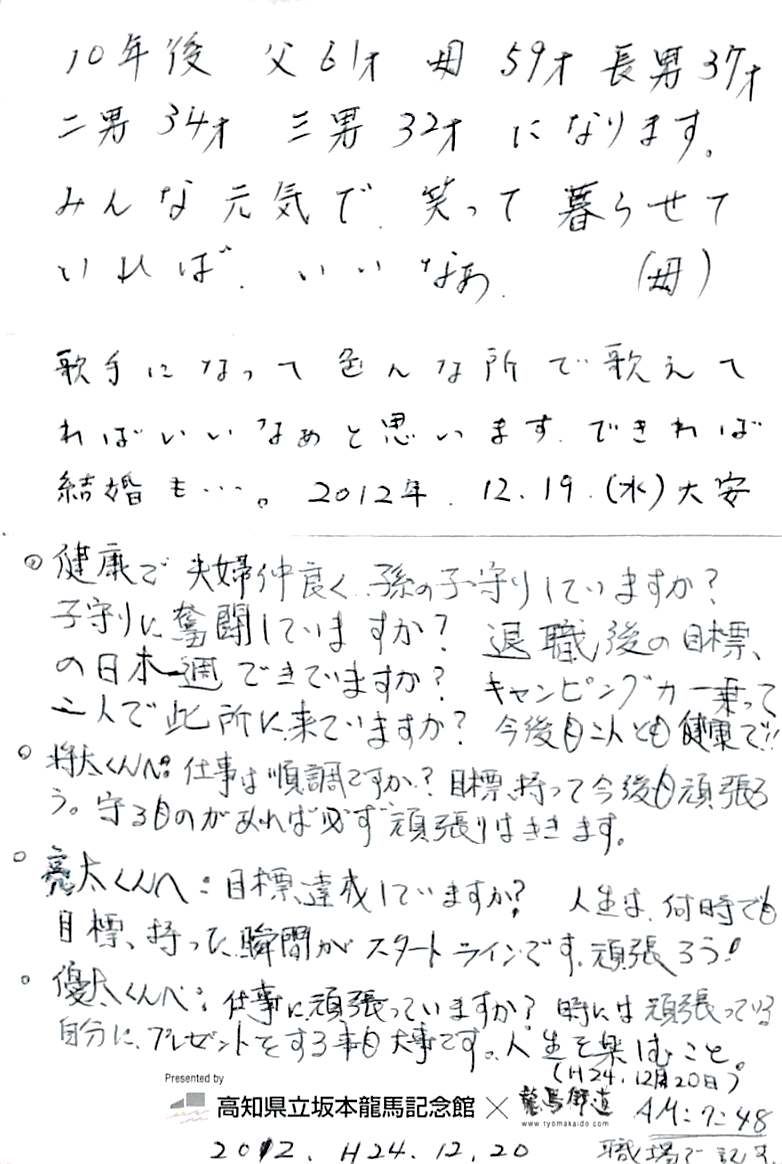 10年後 父61才 母59才 長男37才
二男34才 三男32才 になります。
みんな元気で、笑って暮らせて
いれば、いいなぁ。 (母)
歌手になって色んな所で歌えて
ればいいなぁと思います。できれば
結婚も…。2012年.12.19.(水)大安
◦健康で夫婦仲良く、孫の子守りしていますか?
子守りに奮闘していますか? 退職後の目標、
の日本一週できてますか? キャンピングカー乗って
二人で此所に来ていますか? 今後も二人とも健康で!!
◦将太くんへ:仕事は順調ですか?目標、持って今後も頑張ろ
う。守るものがあれば必ず頑張りはききます。
◦亮太くんへ:目標、達成していますか? 人生は、何時でも
目標、持った瞬間がスタートラインです。頑張ろう!
◦優太くんへ:仕事に頑張っていますか?時には頑張っている
自分に、プレゼントをする事も大事です。人生を楽しむこと。
(H24.12月20日)
Presented by
高知県立坂本龍馬記念館×龍馬街道
www.ryomakaido.com
AM:7:48
2012. H24.12.20 職場で記す